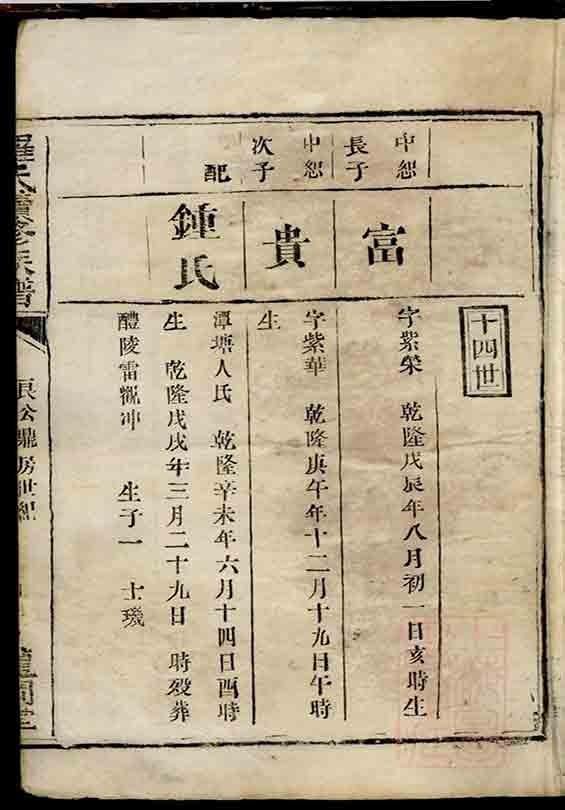 十四世
中恕
長子
富
字紫榮　乾隆戊辰年八月初一日亥時生
中恕
次子
貴
字紫華　乾隆庚午年十二月十九日午時
生
配
鍾氏
潭塘人氏　乾隆辛未年六月十四日酉時
生　乾隆戊戌年三月二十九日　時殁葬
醴陵雷祝冲　生子一　士璣
羅氏續修族譜
房世紀